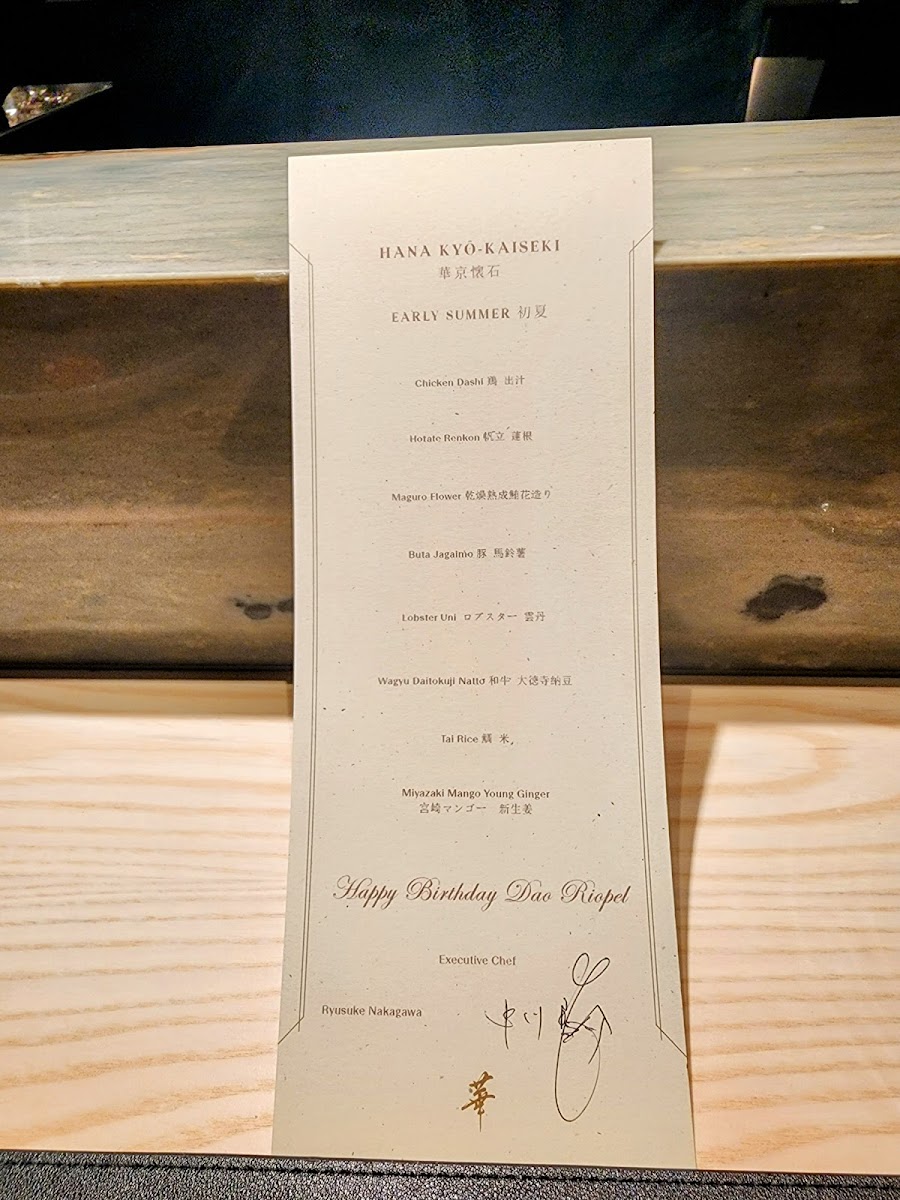 HANA KYŌ-KAISEKI
華京懐石
EARLY SUMMER 初夏
Chicken Dashi 鶏 出汁
Hotate Renkon 帆立 蓮根
Maguro Flower 乾燥熟成鮪花造り
Buta Jagaimo 豚 馬鈴薯
Lobster Uni ロブスター 雲丹
Wagyu Daitokuji Natto 和牛 大徳寺納豆
Tai Rice 鯛 米
Miyazaki Mango Young Ginger
宮崎マンゴー 新生姜
Happy Birthday Dao Riopel
Executive Chef
Ryusuke Nakagawa
中川
華